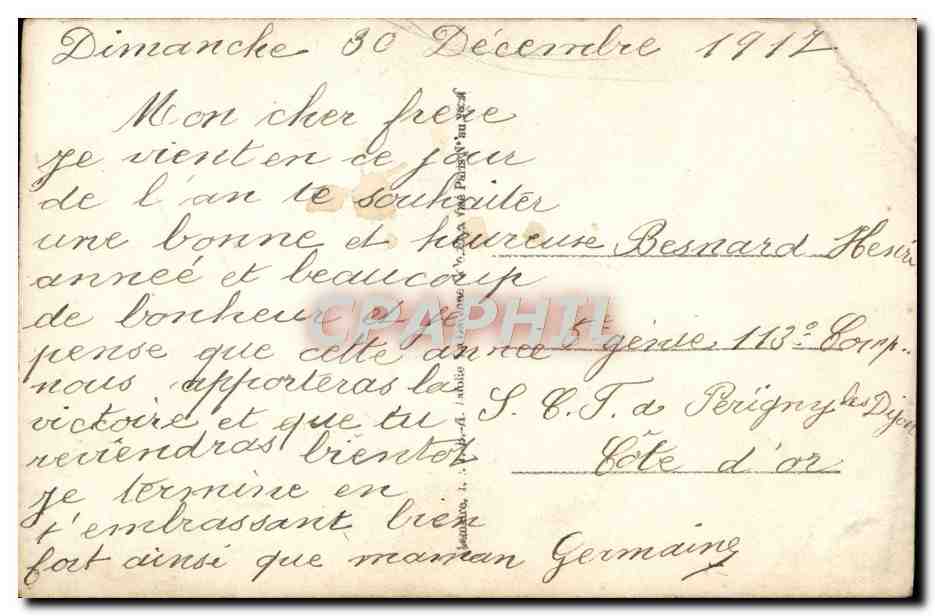 Dimanche 30 Décembre 1917
Mon cher frère
je vient en ce jour
de l'an te souhaiter
une bonne et heureuse
anneé et beaucoup
de bonheur et je
pense que cette année
nous apporteras la
victoire et que tu
reviendras bientot
je termine en
t'embrassant bien
fort ainsi que maman Germaine
Besnard Henri
génie 113e Comp..
S. C. F. a Périgny les Dijon
Côte d'or
CPAPHIL